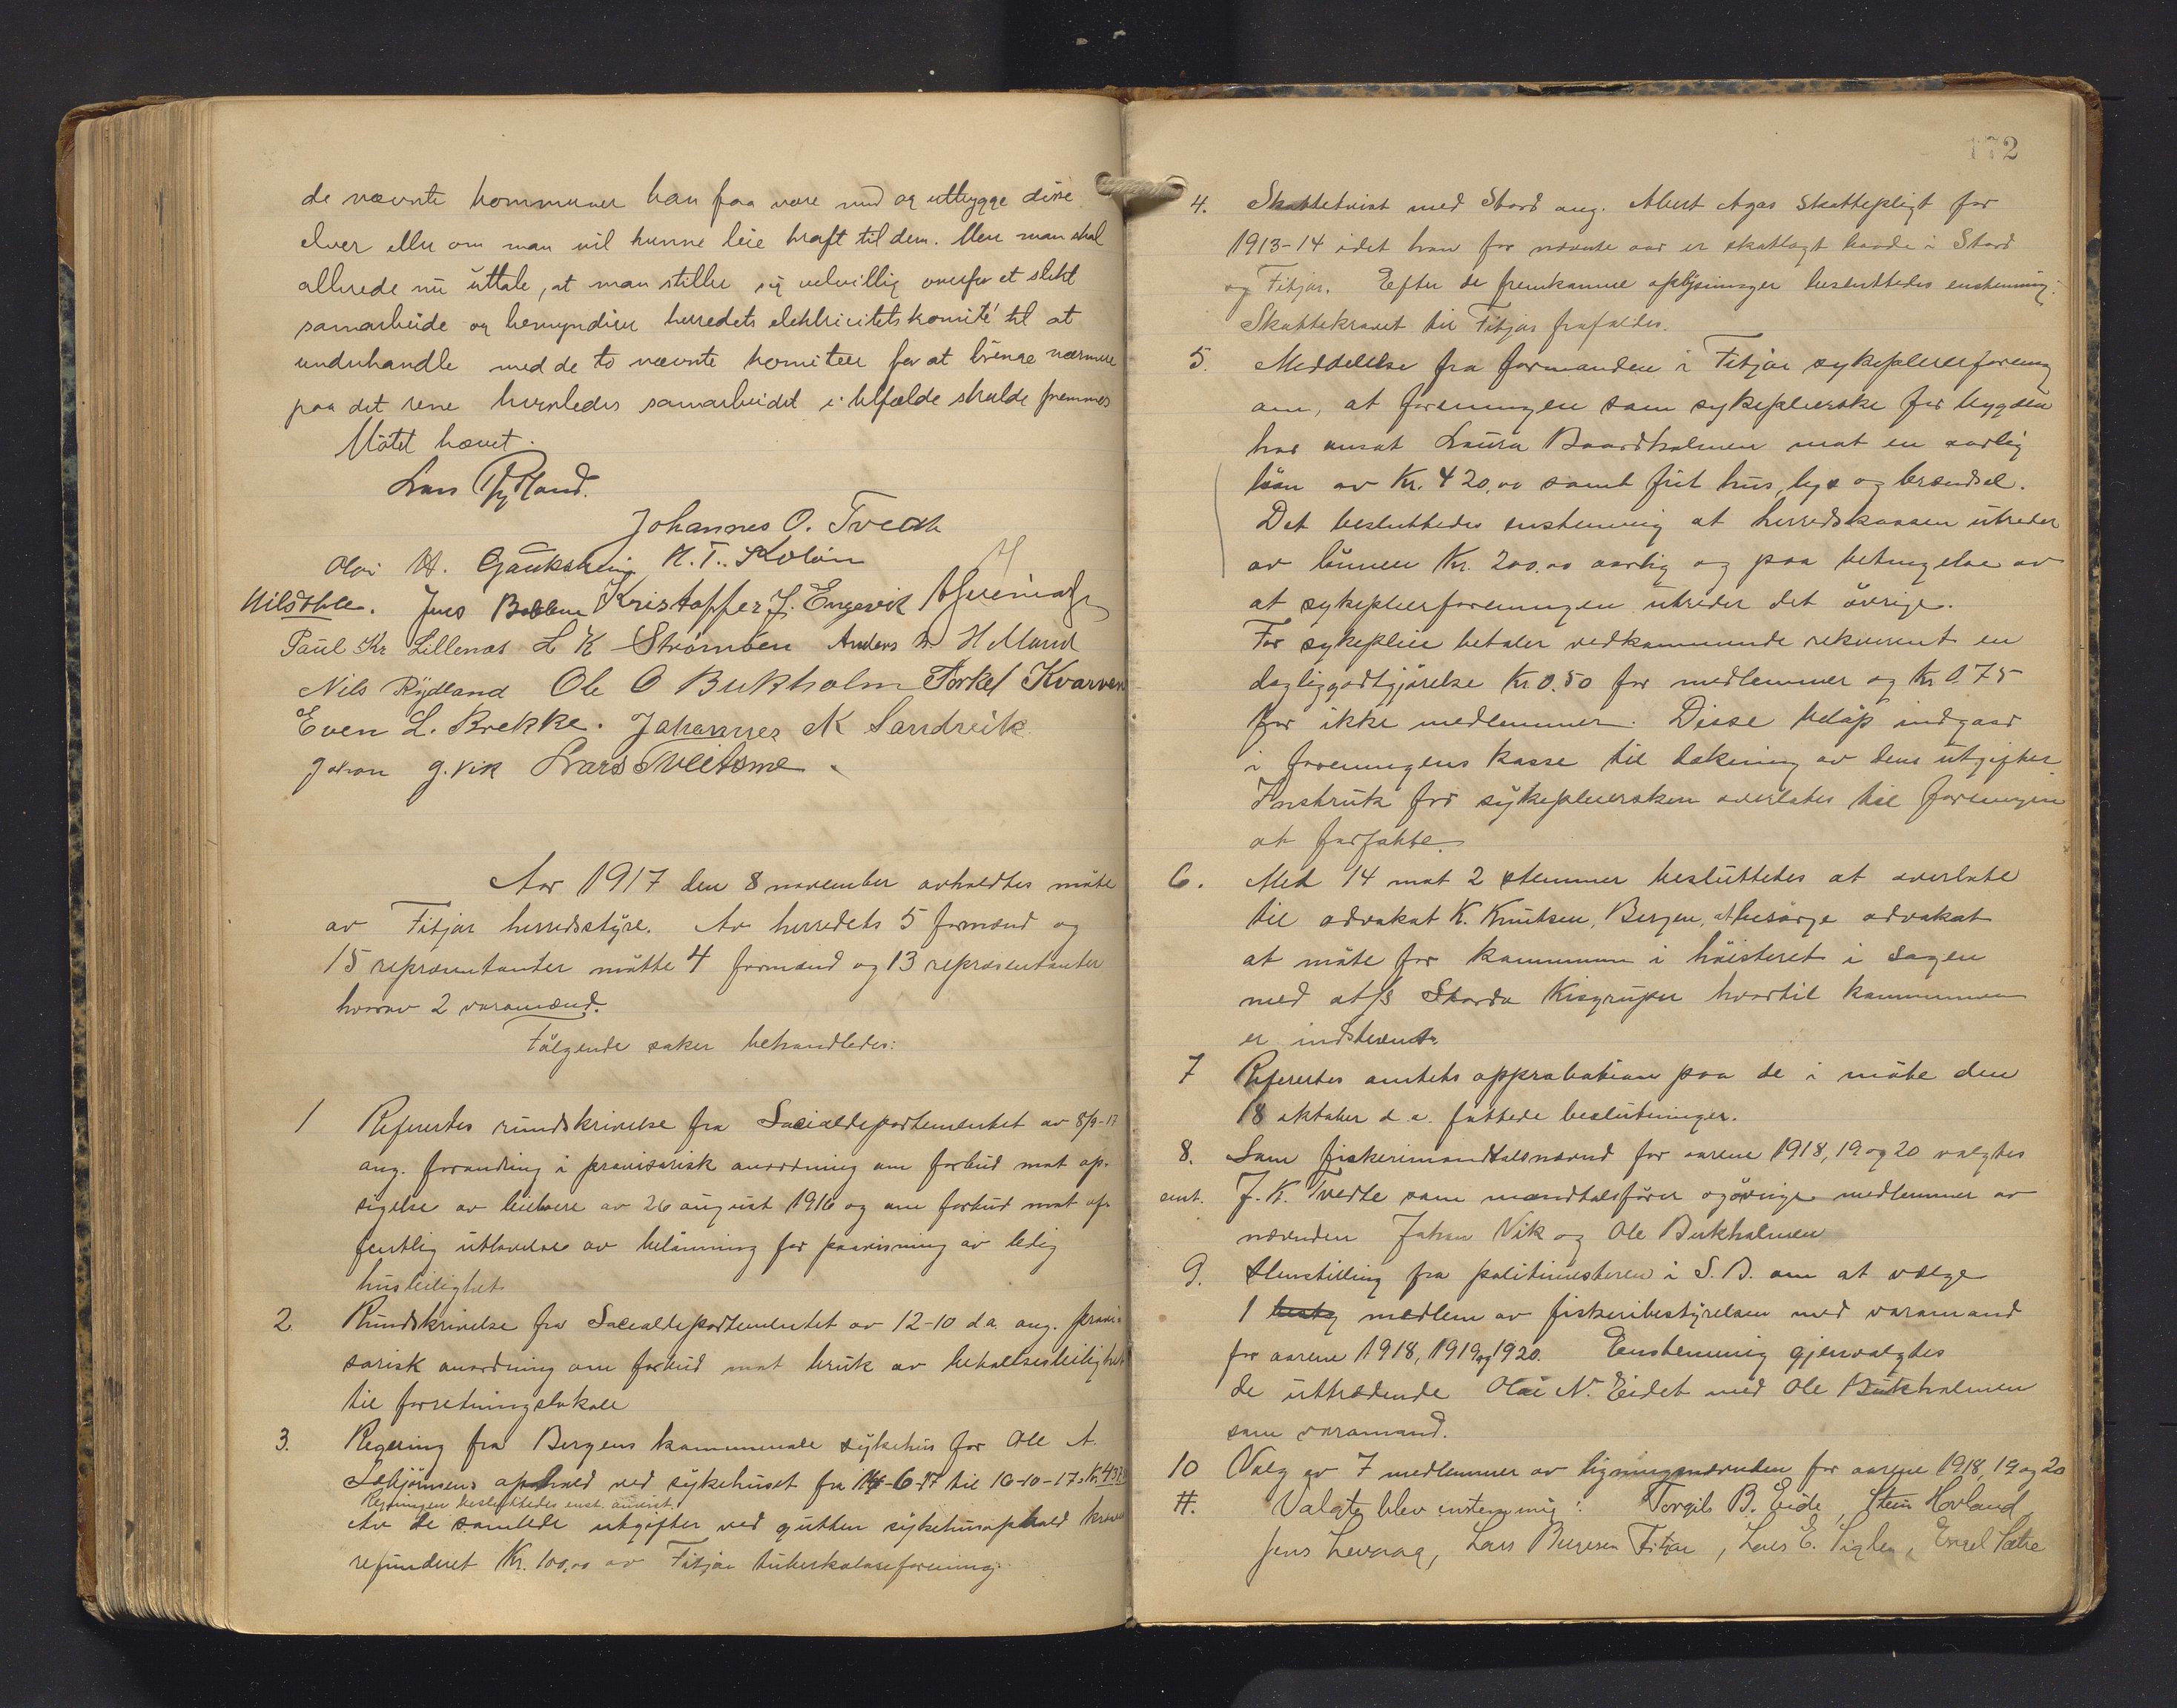 de nævnte kommuner kan faa være med og utbygge disse
elver eller om man vil kunne leie kraft til dem. Men man skal
allerede nu uttale, at man stiller sig velvillig overfor et slikt
samarbeide og bemyndiger herredets elektricitetskomité til at
underhandle med de to nævnte komiteer for at bringe nærmere
paa det rene hvorledes samarbeidet i tilfælde skulde fremmes
Møtet hævet.
Lars Rydland.
Johannes O. Tvedt
Olai H. Gaukshein N. T. Koløen
Nils Jens Bebben Kristoffer J. Engevik
Paul Kr Lillenæs L K Strömöen Anders Helland
Nils Rydland Ole O Bukholm Torkel Kvarven
Even L. Brekke. Johannes K Sandvik
Johan J. Vik Lars Tveitsme.
Aar 1917 den 8 november avholdtes møte
av Fitjar herredsstyre. Av herredets 5 formænd og
15 repræsentanter møtte 4 formænd og 13 repræsentanter
hvorav 2 varamænd.
Følgende saker behandledes:
1 Refertes rundskrivelse fra Socialdepartementet av 8/9-17
ang. forandring i provisorisk anordning om forbud mot op-
sigelse av leieboere av 26 august 1916 og om forbud mot of-
fentlig utlovelse av belønning for paavisning av ledig
husleilighet
2. Rundskrivelse fra Socialdepartementet av 12-10 d.a. ang. provi-
sorisk anordning om forbud mot bruk av beboelsesleilighet
til forretningslokale
3. Regning fra Bergens kommunale sykehus for Ole A.
ophold ved sykehuset fra 14-6-17 til 16-10-17. Kr.
Regningen besluttedes enst. anvist.
Av de samlede utgifter ved gutten sykehusophold kræves
refunderet Kr. 100,00 av Fitjar tuberkuloseforening.
172
4. Skattetvist med Stord ang. Albert Agas skattepligt for
1913-14 idet han for nævnte aar er skatlagt baade i Stord
og Fitjar. Efter de fremkomne oplysninger besluttedes enstemmig:
Skattekravet til Fitjar frafaldes.
5. Meddelelse fra formanden i Fitjar sykepleierforening
om, at foreningen som sykepleierske for bygden
har ansat Laura Baardholmen mot en aarlig
løn av Kr. 420,00 samt frit hus, lys og brændsel.
Det besluttedes enstemmig at herredskassen utreder
av lønnen Kr. 200,00 aarlig og paa betingelse av
at sykepleierforeningen utreder det øvrige.
For sykepleie betaler vedkommende rekvirent en
dagliggodtgjørelse Kr 0.50 for medlemmer og Kr 0.75
for ikke medlemmer. Disse beløp indgaar
i foreningens kasse til dækning av dens utgifter
Instruk for sykepleiersken overlates til foreningen
at forfatte.
6. Med 14 mot 2 stemmer besluttedes at overlate
til advokat K. Knutsen, Bergen, at besørge advokat
at møte for kommunen i høisteret i sagen
med at/s Stordø Kisgruper hvortil kommunen
er indstevnt.
7 Refertes amtets approbation paa de i møte den
18 oktober d.a. fattede beslutninger.
8. Som fiskerimandtalsnævnd for aarene 1918, 19 og 20 valgtes
enst. J. K. Tvedte som mandtalsfører og øvrige medlemmer av
nævnden Johan Vik og Ole Bukholmen
9. Henstilling fra politimesteren i S. B. om at vælge
1 medlem av fiskeribestyrelsen med varamand
for aarene 1918, 1919 og 1920. Enstemmig gjenvalgtes
de uttrædende Olai N. Eidet med Ole Bukholmen
som varamand.
10 Valg av 7 medlemmer av ligningsnævnden for aarene 1918, 19 og 20
#. Valgte blev enstemmig: Torgils B. Eide, Stein Hovland
Jens Levaag, Lars Fitjar, Lars E. Engel Sætre